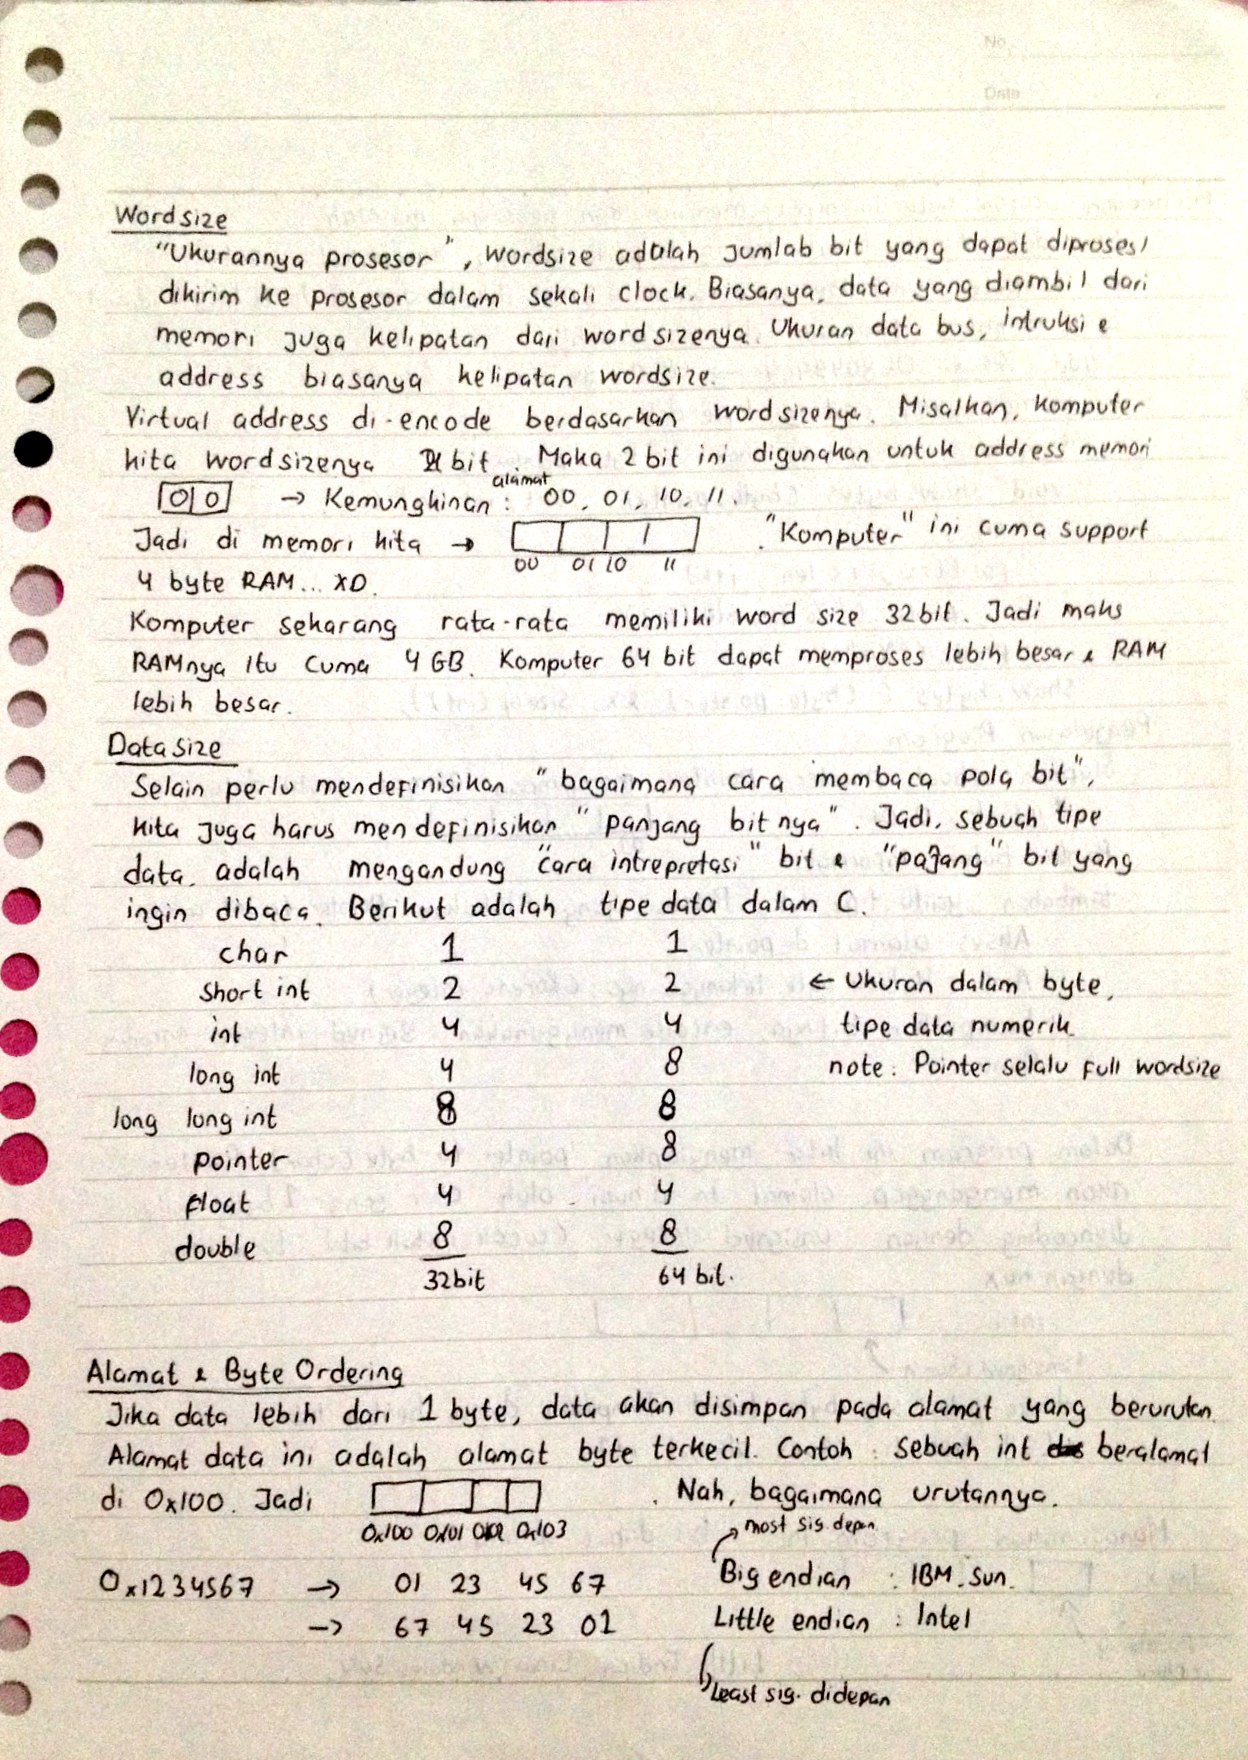 No.
Date
Wordsize
"Ukurannya prosesor", wordsize adalah jumlah bit yang dapat diproses/
dikirim ke prosesor dalam sekali clock. Biasanya, data yang diambil dari
memori juga kelipatan dari wordsizenya. Ukuran data bus, intruksi &
address biasanya kelipatan wordsize.
Virtual address di-encode berdasarkan wordsizenya. Misalkan, komputer
kita wordsizenya 2 bit. Maka 2 bit ini digunakan untuk address memori
0 0 → Kemungkinan alamat : 00, 01, 10, 11.
Jadi di memori kita → . "Komputer" ini cuma support
00 01 10 11
4 byte RAM... XD.
Komputer sekarang rata-rata memiliki word size 32bit. Jadi maks
RAMnya itu cuma 4 GB. Komputer 64 bit dapat memproses lebih besar & RAM
lebih besar.
Data size
Selain perlu mendefinisikan "bagaimana cara membaca pola bit",
kita juga harus mendefinisikan "panjang bit nya". Jadi, sebuah tipe
data, adalah mengandung "cara intrepretasi" bit & "pajang" bit yang
ingin dibaca. Berikut adalah tipe data dalam C.
char 1 1
short int 2 2 ← Ukuran dalam byte,
int 4 4 tipe data numerik
long int 4 8 note : Pointer selalu full wordsize
long long int 8 8
pointer 4 8
float 4 4
double 8 8
32bit 64 bit.
Alamat & Byte Ordering
Jika data lebih dari 1 byte, data akan disimpan pada alamat yang berurutan.
Alamat data ini adalah alamat byte terkecil. Contoh : sebuah int beralamat
di 0x100. Jadi . Nah, bagaimana urutannya.
0x100 0x101 0x102 0x103
most sig depan
0x1234567 → 01 23 45 67 Big endian : IBM, Sun.
→ 67 45 23 01 Little endian : Intel
Least sig. didepan